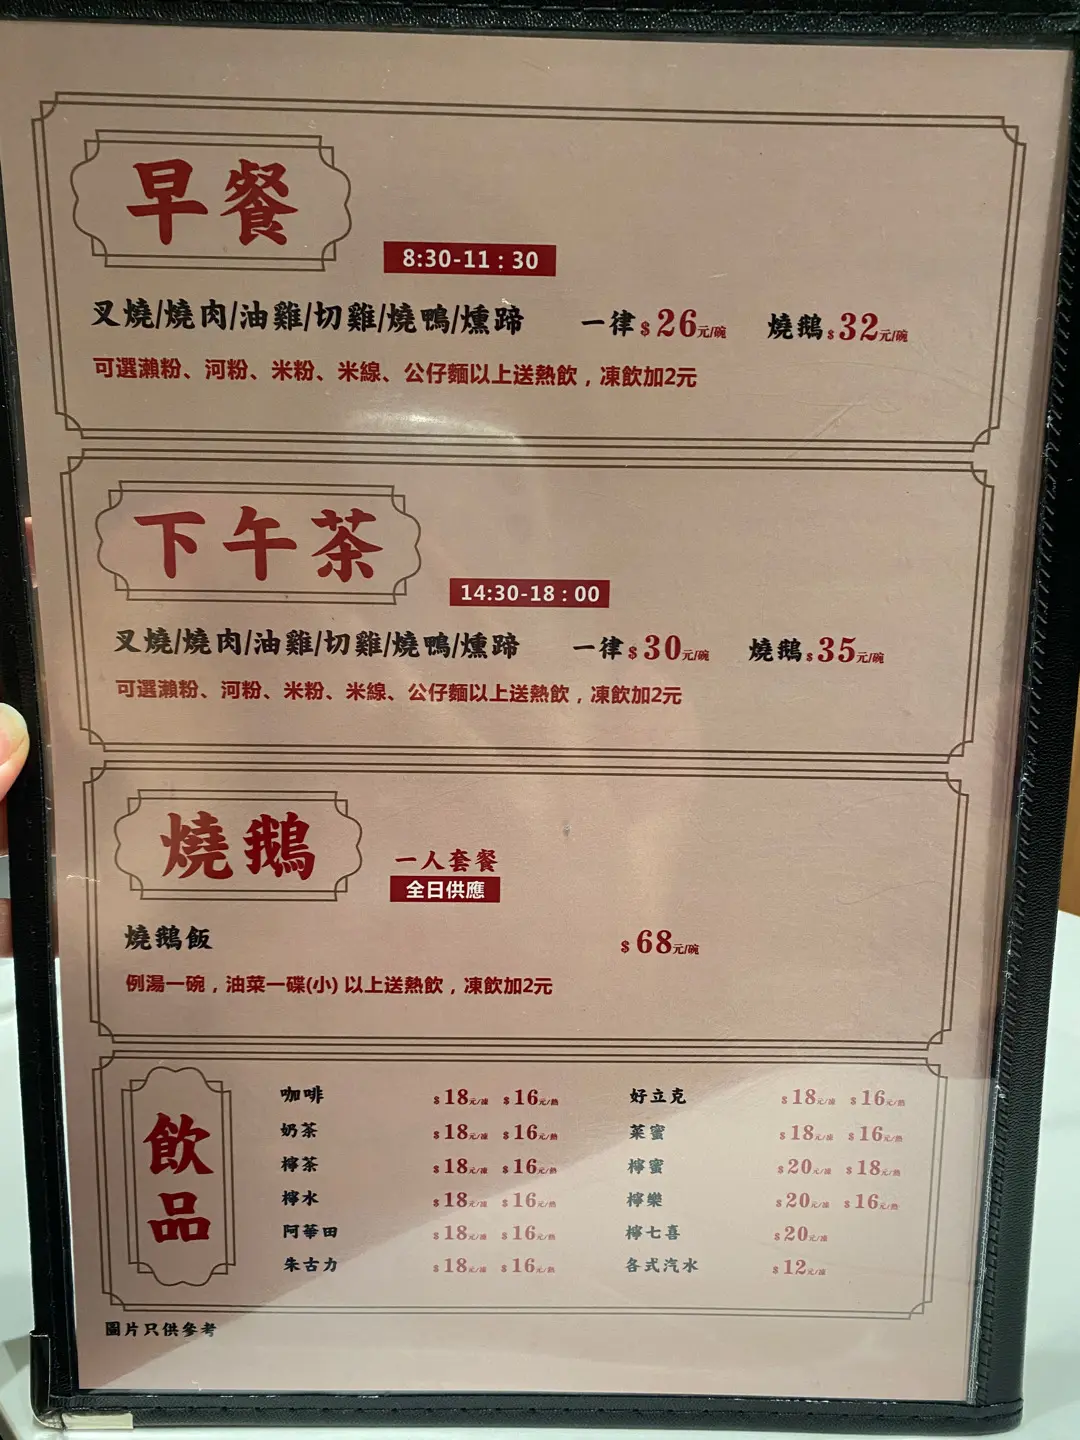 早餐
8:30-11：30
叉燒/燒肉/油雞/切雞/燒鴨/燻蹄 一律$26元/碗 燒鵝$32元/碗
可選瀨粉、河粉、米粉、米線、公仔麵以上送熱飲，凍飲加2元
下午茶
14:30-18：00
叉燒/燒肉/油雞/切雞/燒鴨/燻蹄 一律$30元/碗 燒鵝$35元/碗
可選瀨粉、河粉、米粉、米線、公仔麵以上送熱飲，凍飲加2元
燒鵝
一人套餐
全日供應
燒鵝飯 $68元/碗
例湯一碗，油菜一碟(小) 以上送熱飲，凍飲加2元
飲品
咖啡 $18元/凍 $16元/熱 好立克 $18元/凍 $16元/熱
奶茶 $18元/凍 $16元/熱 菜蜜 $18元/凍 $16元/熱
檸茶 $18元/凍 $16元/熱 檸蜜 $20元/凍 $18元/熱
檸水 $18元/凍 $16元/熱 檸樂 $20元/凍 $16元/熱
阿華田 $18元/凍 $16元/熱 檸七喜 $20元/凍
朱古力 $18元/凍 $16元/熱 各式汽水 $12元/凍
圖片只供參考